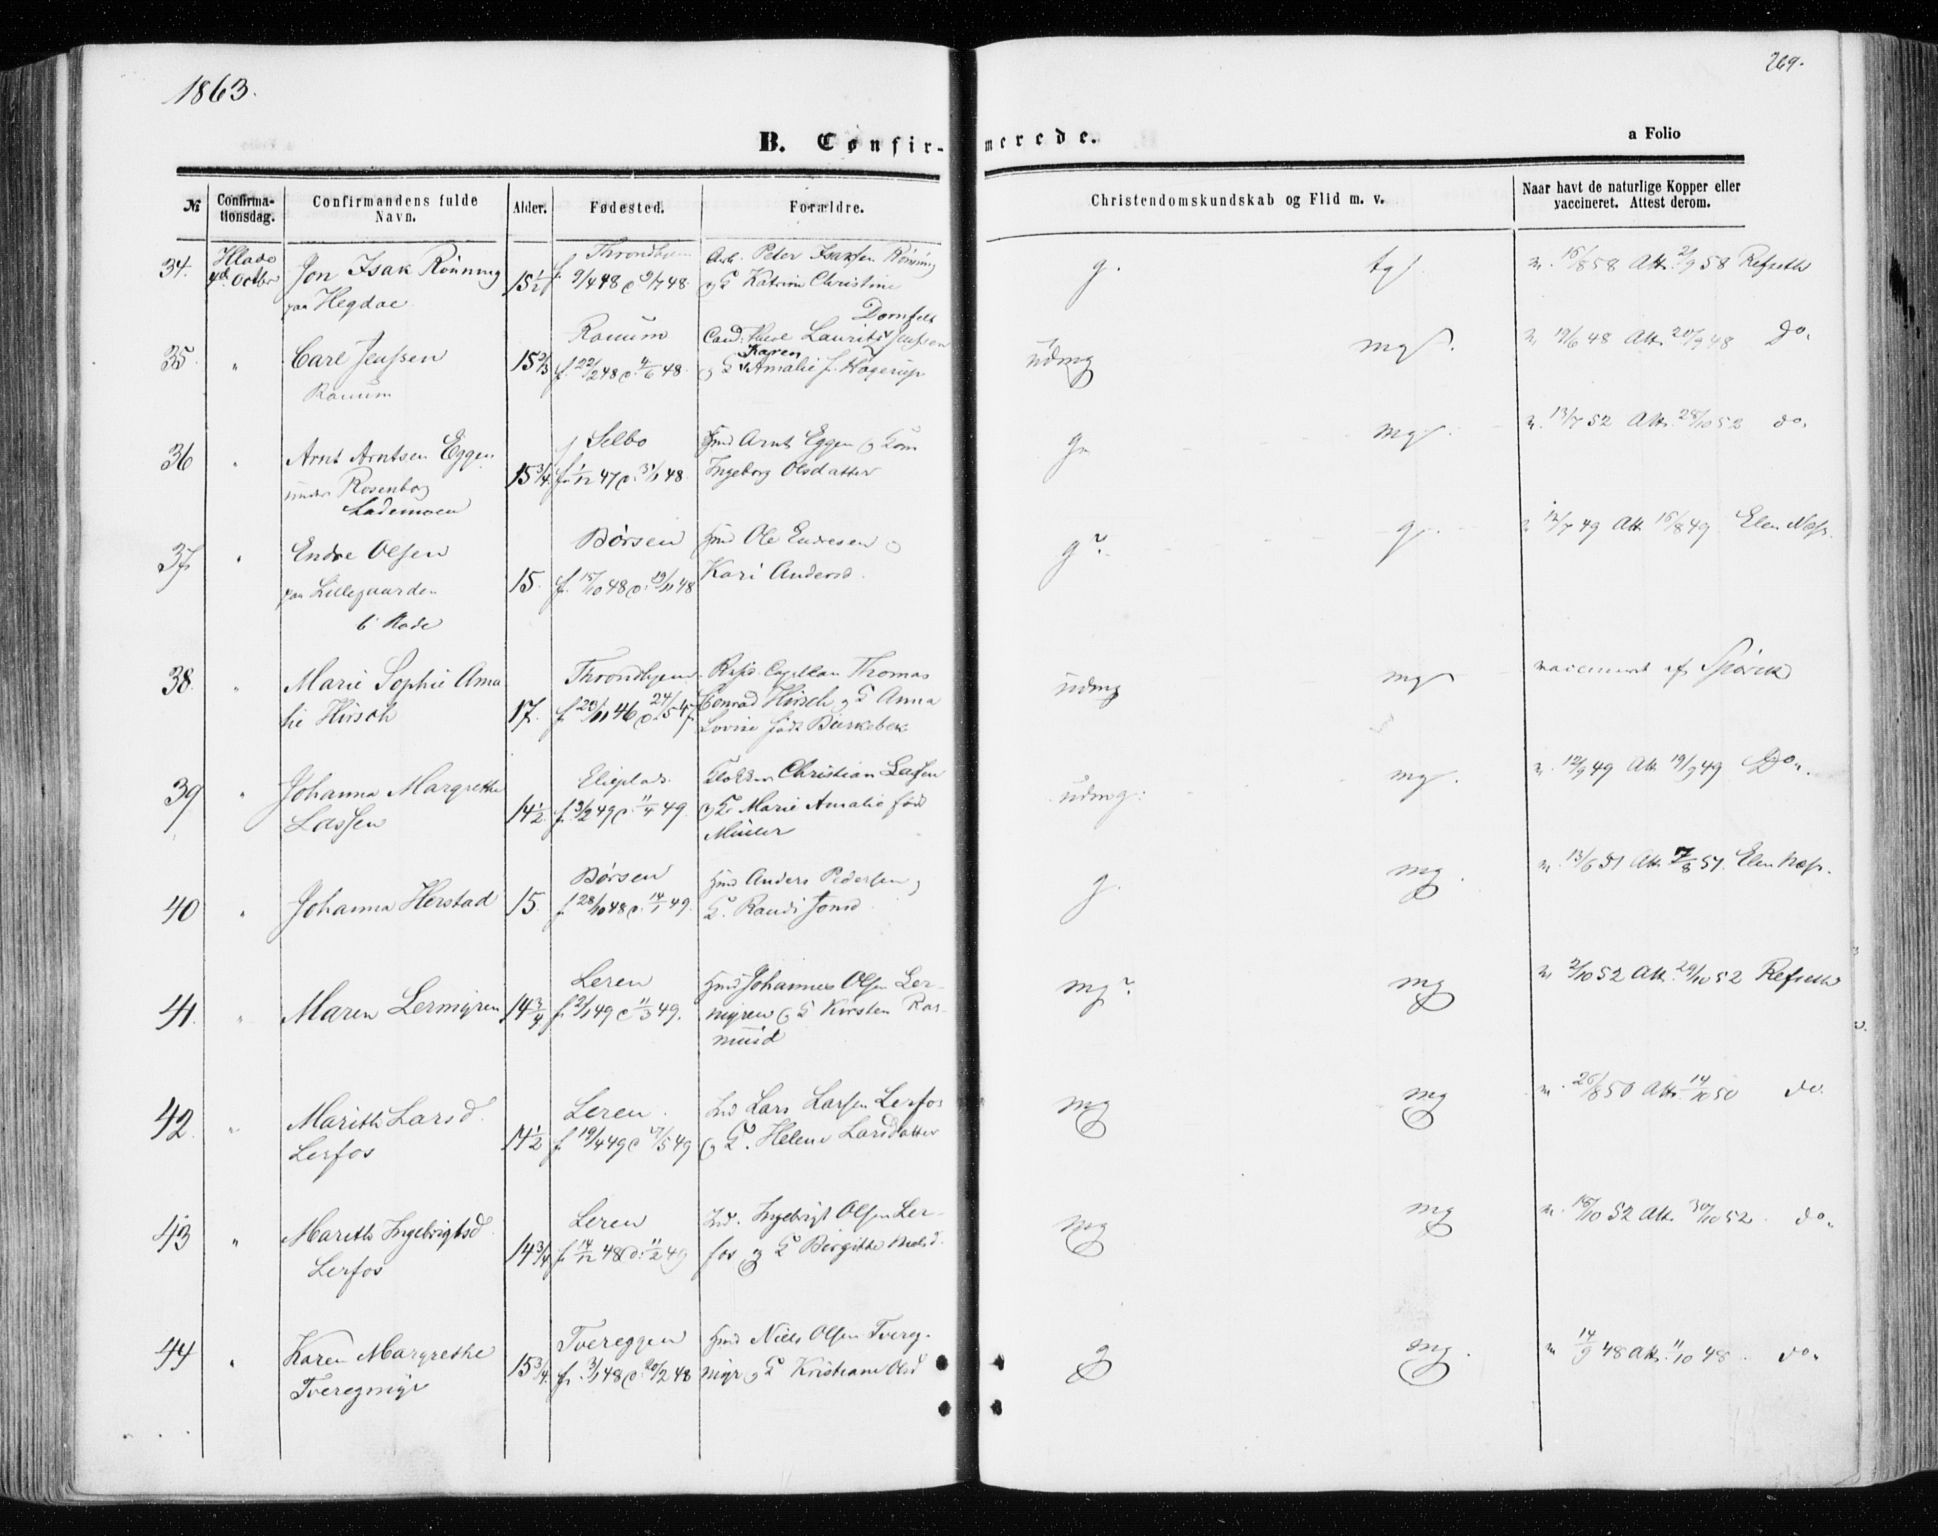 1863.
269.
B. Confir-merede.
a Folio
№
Confirma-
tionsdag.
Confirmandens fulde
Navn.
Alder.
Fødested.
Forældre.
Christendomskundskab og Flid m. v.
Naar havt de naturlige Kopper eller
vaccineret. Attest derom.
34. Hlade
4d. Octbr
Jon Isak Rönning
paa Hegdae
15½
Throndhjem
f. 9/4 48 d
Arb. Peter Isaksen Rönning
og K Katrine Christine
Dornfelt
g.
tg.
v. 15/8 58 Att. 2/9 58 Refseth
35. "
Carl Jenssen
Ranum
15⅔
Ranum
f. 22/2 48 d. 4/6 48
Cand. Lauritz Jenssen
Karen
og K Amalie f. Hagerup
udmg
mg.
v. 19/6 48 Att. 20/9 48 Do.
36 "
Arnt Arntsen Eggen
under Rosenborg
Lademoen
15¾
Selbo
f. 1/12 47 d. 3/1 48
Hmd Arnt Eggen og Kone
Ingeborg Olsdatter
g.
mg.
v. 13/7 52 Att. 28/10 52 do.
37. "
Endre Olsen
paa Lillegaarden
15.
Börsen
f. 15/10 48 d. 19/11 48
Hmd Ole Endresen og
Kari Andersd.
g?
g.
v. 12/7 49 Att. 15/8 49 Elen Næss.
38. "
Marie Sophie Ama
lie Hirsch
17.
Throndhjem
f. 20/11 46 d. 24/5 47
Resid. Capellan Thomas
Conrad Hirsch og K Anna
Lovise født Birkebek
udmg
mg
vaccineret af
39 "
Johanna Margrethe
Lassen
14½
f. 3/2 49 d. 11/4 49
Klokker Christian Lassen
og K. Marie Amalie född
Müller
udmg.
mg.
v. 12/9 49 Att. 19/9 49 Do.
40 "
Johanna Herstad
15.
Börsen
f. 28/10 48 d. 14/1 49.
Hmd Anders Pedersen og
K. Randi Jonsd.
g.
mg.
v. 13/6 51 Att. 7/8 51. Elen Næss.
41. "
Maren Lermyren
14¾
Leren
f. 2/1 49 d 11/3 49.
Hmd Johannes Olsen Ler-
myren og K Kirsten Ras-
musd
mg?
mg
v. 2/10 52 Att. 29/10 52 Refseth
42. "
Marith Larsd.
Lerfos
14½
Leren.
f. 19/4 49 d 17/5 49
Lars Larsen Lerfos
og K. Helene Larsdatter
mg
mg
v. 26/8 50 Att. 14/10 50 do.
43 "
Marith Ingebrigtsd.
Lerfos
14¾
Leren
f. 14/12 48 d. 11/2 49
Ingebrigt Olsen Ler-
fos og K Birgitte Nielsd.
mg
mg
v. 15/10 52 Att. 30/10 52. do.
44 "
Karen Margrethe
Tveregmyr
15¾
Tvereggen
f. 3/1 48 d. 20/2 48
Hmd Niels Olsen Tvereg-
myr og K Kristiane Olsd
g
mg.
v 14/9 48 Att. 11/10 48. do.